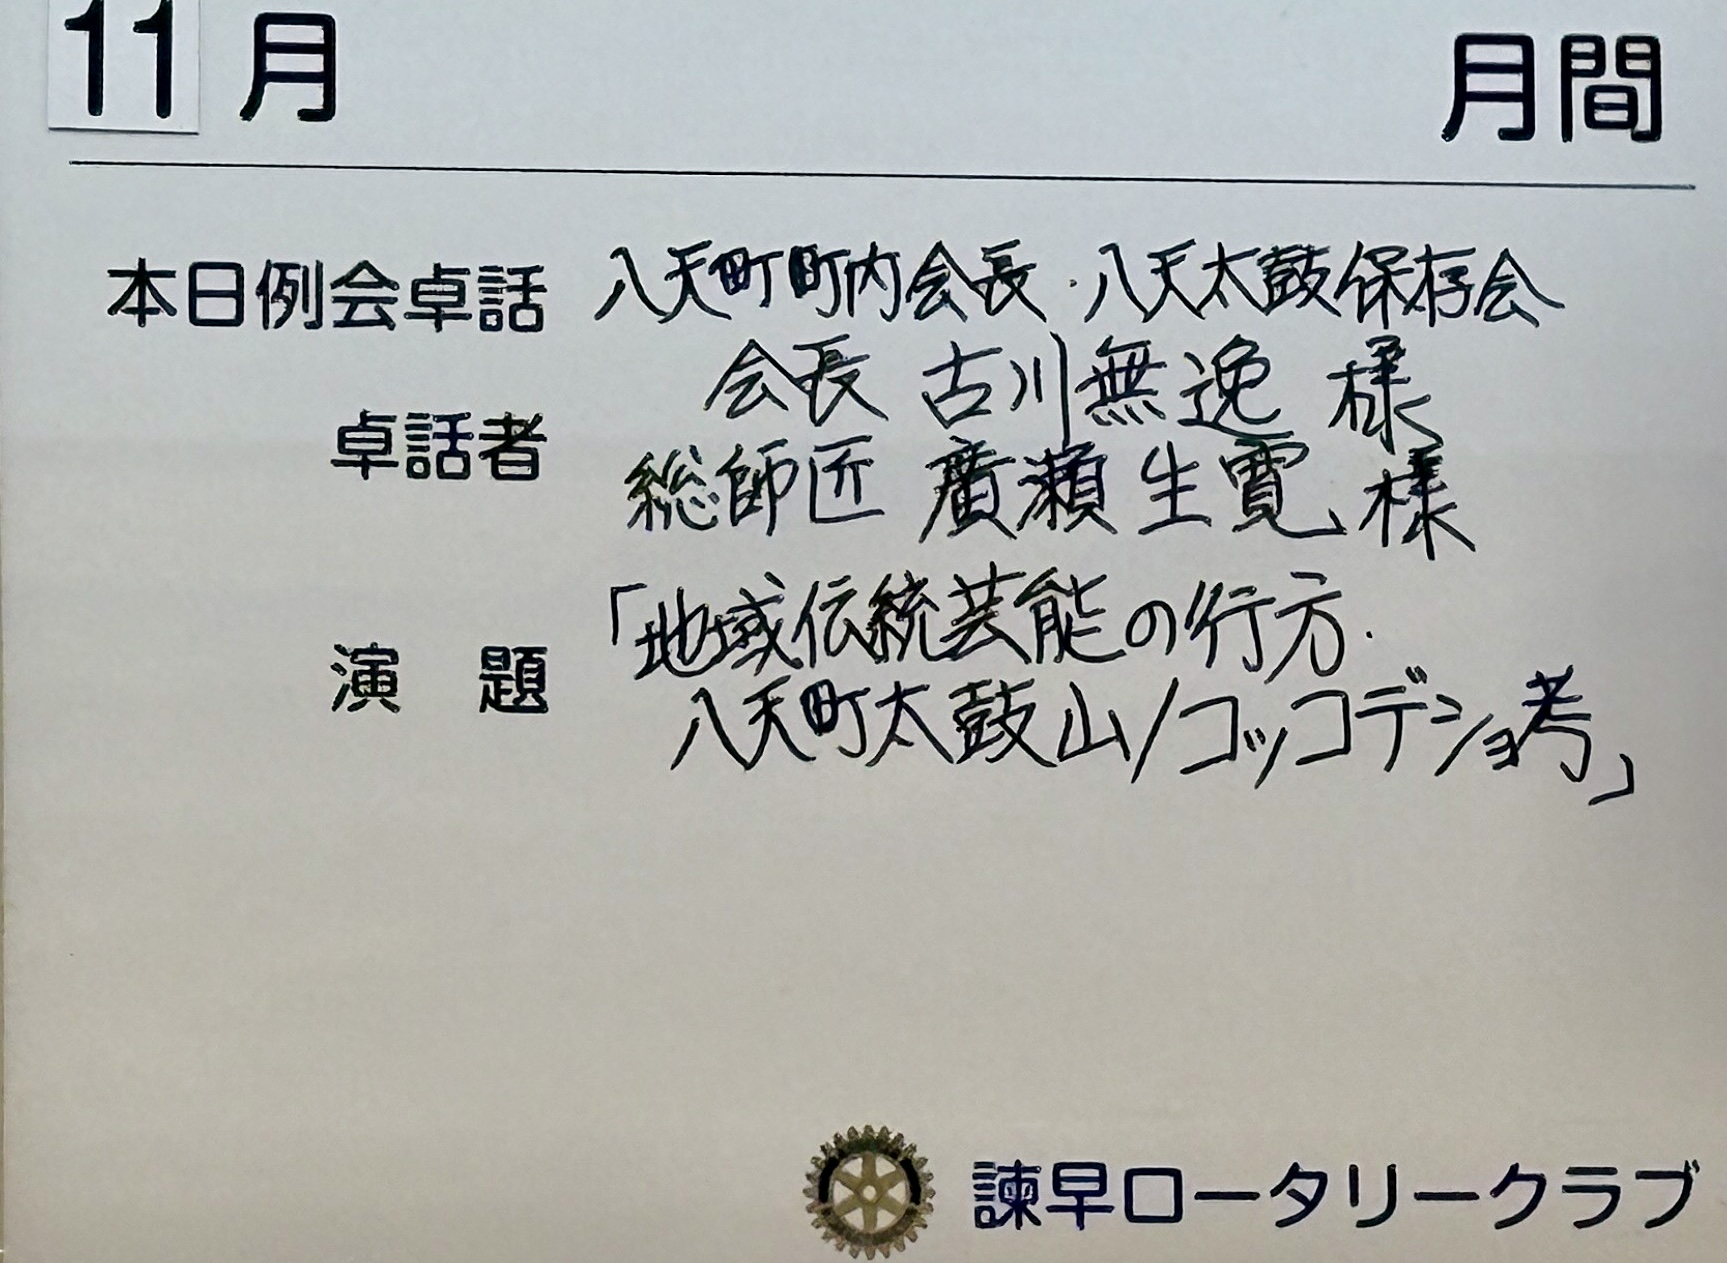 11月 月間
本日例会卓話 八天町町内会長・八天太鼓保存会
会長 古川無逸 様
卓話者
総師匠 廣瀬生寛 様
「地域伝統芸能の行方・
演 題
八天町太鼓山/コッコデショ考」
諫早ロータリークラブ